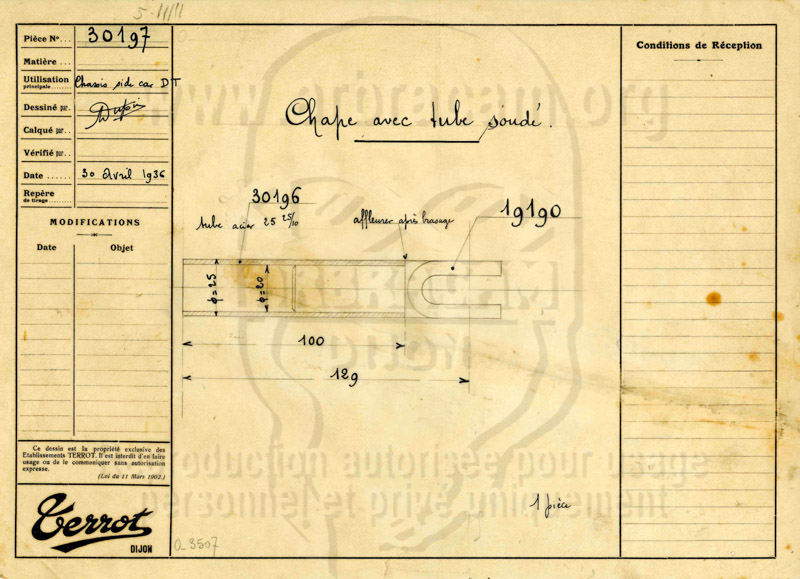 5-11/11
Pièce Nº... 30197
Matière ...
Utilisation
principale....... Chassis side car DT
Dessiné par.
Calqué par..
Vérifié par..
Date ...... 30 Avril 1936
Repère
de tirage......
MODIFICATIONS
Date Objet
Ce dessin est la propriété exclusive des
Etablissements TERROT. Il est interdit d'en faire
usage ou de le communiquer sans autorisation
expresse.
(Loi du 11 Mars 1902.)
Terrot
DIJON
Chape avec tube soudé.
30196
tube acier 25 25/10
affleurer après brasage
19190
ϕ=25
ϕ=20
100
129
1 pièce
0_3507
Conditions de Réception
www.orbracam.org
ORBRACAM
DIJON
Reproduction autorisée pour usage
personnel et privé uniquement